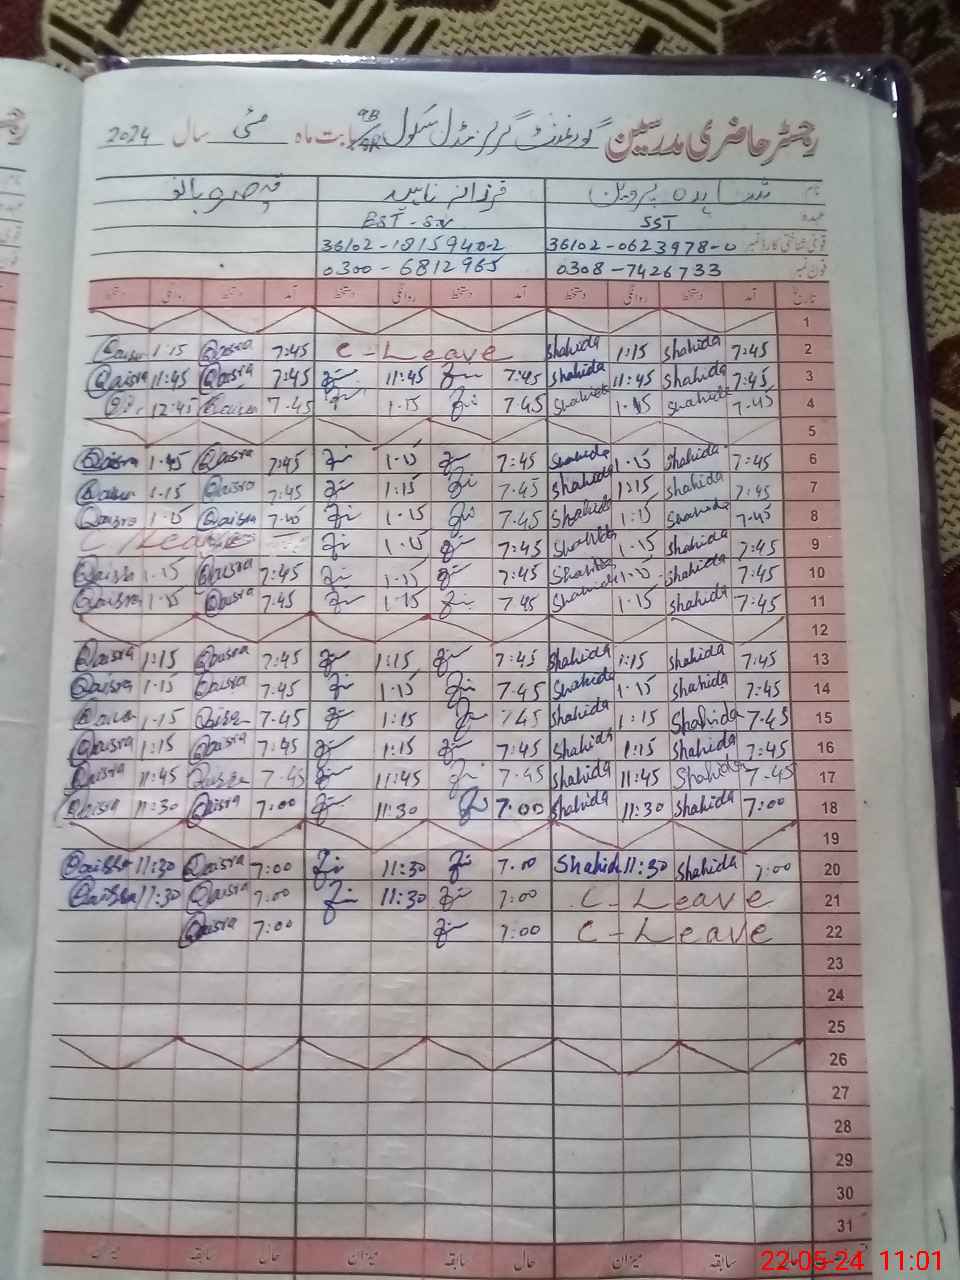 رجسٹر حاضری مدرسین گورنمنٹ گرلز مڈل سکول 9B/4R بابت ماہ مئی سال 2024
نام شاہدہ پروین فرزانہ ناہید قیصرہ بانو
عہدہ SST EST-SV
قومی شناختی کارڈ نمبر 36102-0623978-0 36102-1815940-2
فون نمبر 0308-7426733 0300-6812965
تاریخ آمد دستخط روانگی دستخط آمد دستخط روانگی دستخط آمد دستخط روانگی دستخط
1
2 7:45 Shahida 1:15 Shahida C-Leave 7:45 Qaisra 1:15
3 7:45 Shahida 11:45 Shahida 7:45 11:45 7:45 Qaisra 11:45 Qaisra
4 7.45 Shahida 1.15 Shahida 7.45 1.15 7.45 12:45
5
6 7:45 Shahida 1.15 Shahida 7:45 1.15 7:45 Qaisra 1.45 Qaisra
7 7:45 Shahida 1:15 Shahida 7.45 1:15 7:45 Qaisra 1.15
8 7.45 Shahida 1:15 Shahida 7.45 1.15 7.45 Qaisra 1.15 Qaisra
9 7:45 Shahida 1.15 Shahida 7:45 1.15 C/Leave
10 7:45 Shahida 1.15 Shahida 7:45 1.15 7:45 Qaisra 1.15 Qaisra
11 7:45 Shahida 1.15 Shahida 7.45 1.15 7:45 Qaisra 1.15 Qaisra
12
13 7:45 Shahida 1:15 Shahida 7:45 1:15 7:45 Qaisra 1:15 Qaisra
14 7:45 Shahida 1.15 Shahida 7.45 1.15 7:45 Qaisra 1.15 Qaisra
15 7.45 Shahida 1:15 Shahida 7.45 1:15 7.45 1.15
16 7:45 Shahida 1:15 Shahida 7:45 1:15 7:45 Qaisra 1:15 Qaisra
17 7.45 Shahida 11:45 Shahida 7.45 11:45 7.45 Qaisra 11:45 Qaisra
18 7:00 Shahida 11:30 Shahida 7:00 11:30 7:00 Qaisra 11:30 Qaisra
19
20 7:00 Shahida 11:30 Shahid 7.00 11:30 7:00 Qaisra 11:30 Qaisra
21 C-Leave 7:00 11:30 7:00 Qaisra 11:30 Qaisra
22 C-Leave 7:00 7:00 Qaisra
23
24
25
26
27
28
29
30
31
حال سابقہ میزان حال سابقہ میزان حال سابقہ میزان
22-05-24 11:01